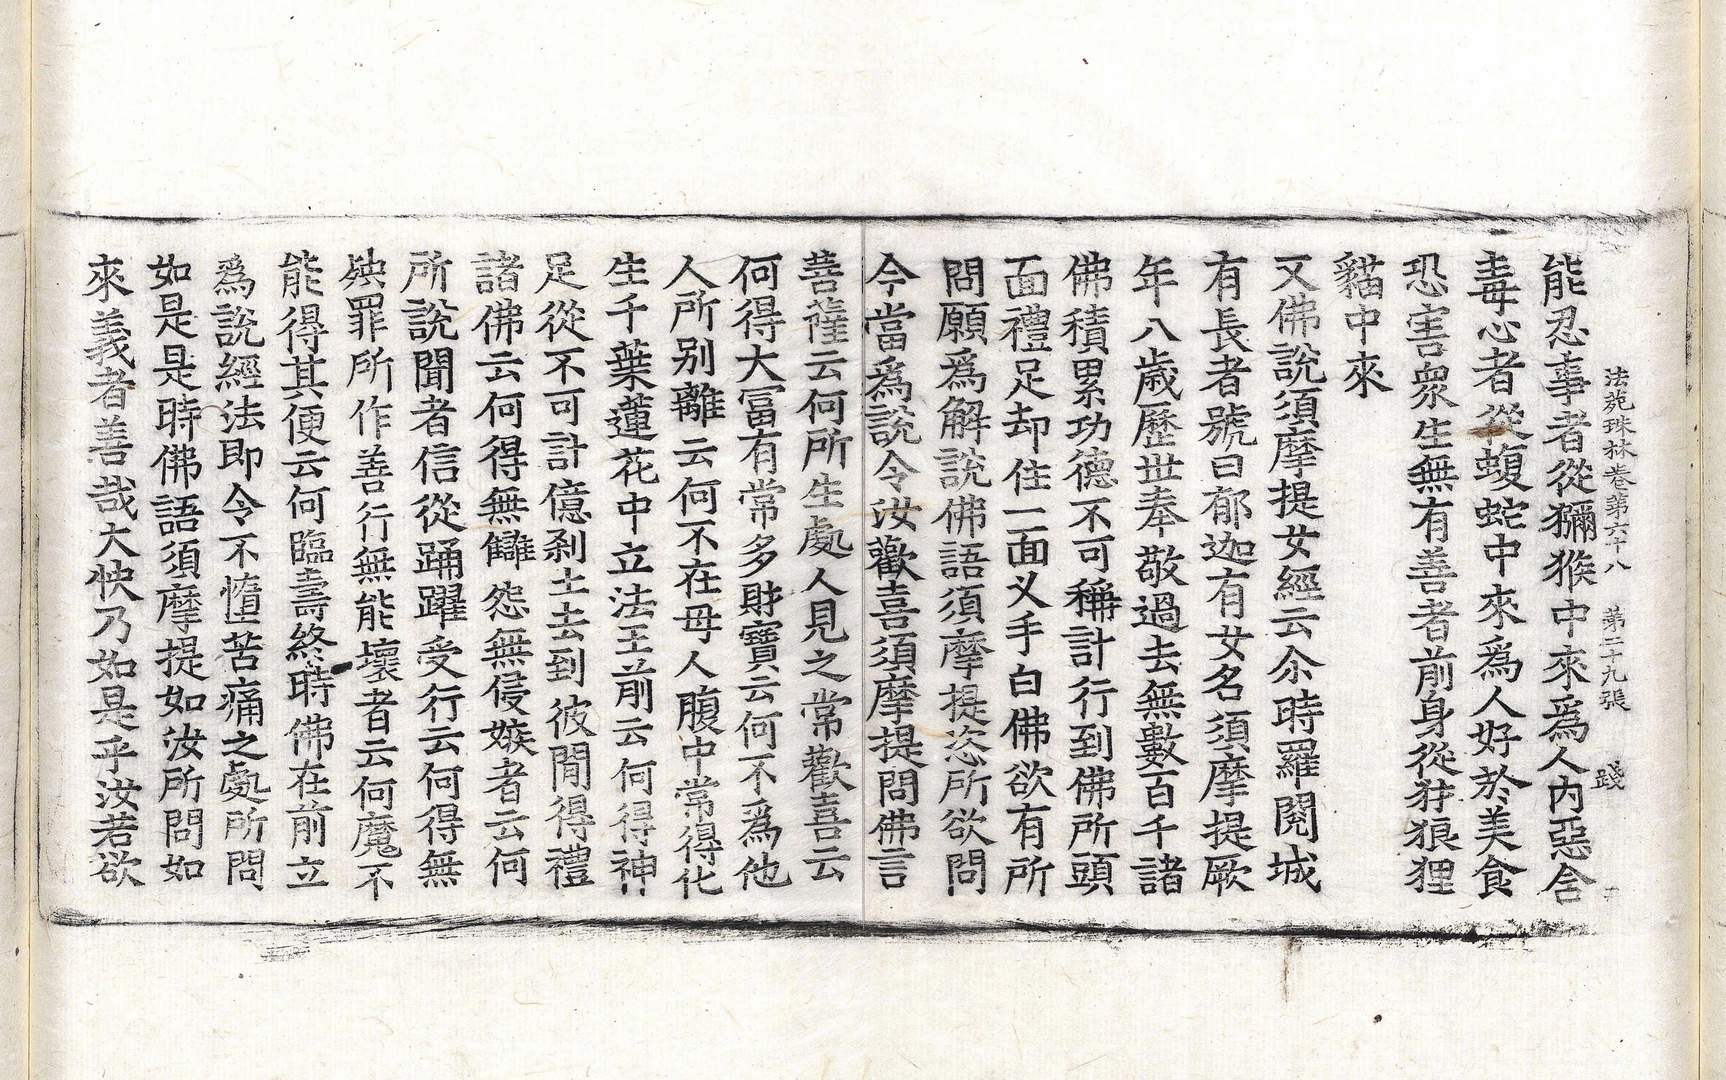 法苑珠林卷第六十八　第二十九張　踐
能忍事者從獼猴中來爲人內惡含
毒心者從蝮蛇中來爲人好於美食
恐害衆生無有善者前身從犲狼狸
貓中來
又佛說須摩提女經云尒時羅閱城
有長者號曰郁迦有女名須摩提厥
年八歲歷世奉敬過去無數百千諸
佛積累功德不可稱計行到佛所頭
面禮足却住一面叉手白佛欲有所
問願爲解說佛語須摩提恣所欲問
今當爲說令汝歡喜須摩提問佛言
菩薩云何所生處人見之常歡喜云
何得大冨有常多財寶云何不爲他
人所別離云何不在母人腹中常得化
生千葉蓮花中立法王前云何得神
足從不可計億刹土去到彼閒得禮
諸佛云何得無讎怨無侵嫉者云何
所說聞者信從踊躍受行云何得無
殃罪所作善行無能壞者云何魔不
能得其便云何臨壽終時佛在前立
爲說經法即令不墮苦痛之處所問
如是是時佛語須摩提如汝所問如
來義者善哉大快乃如是乎汝若欲